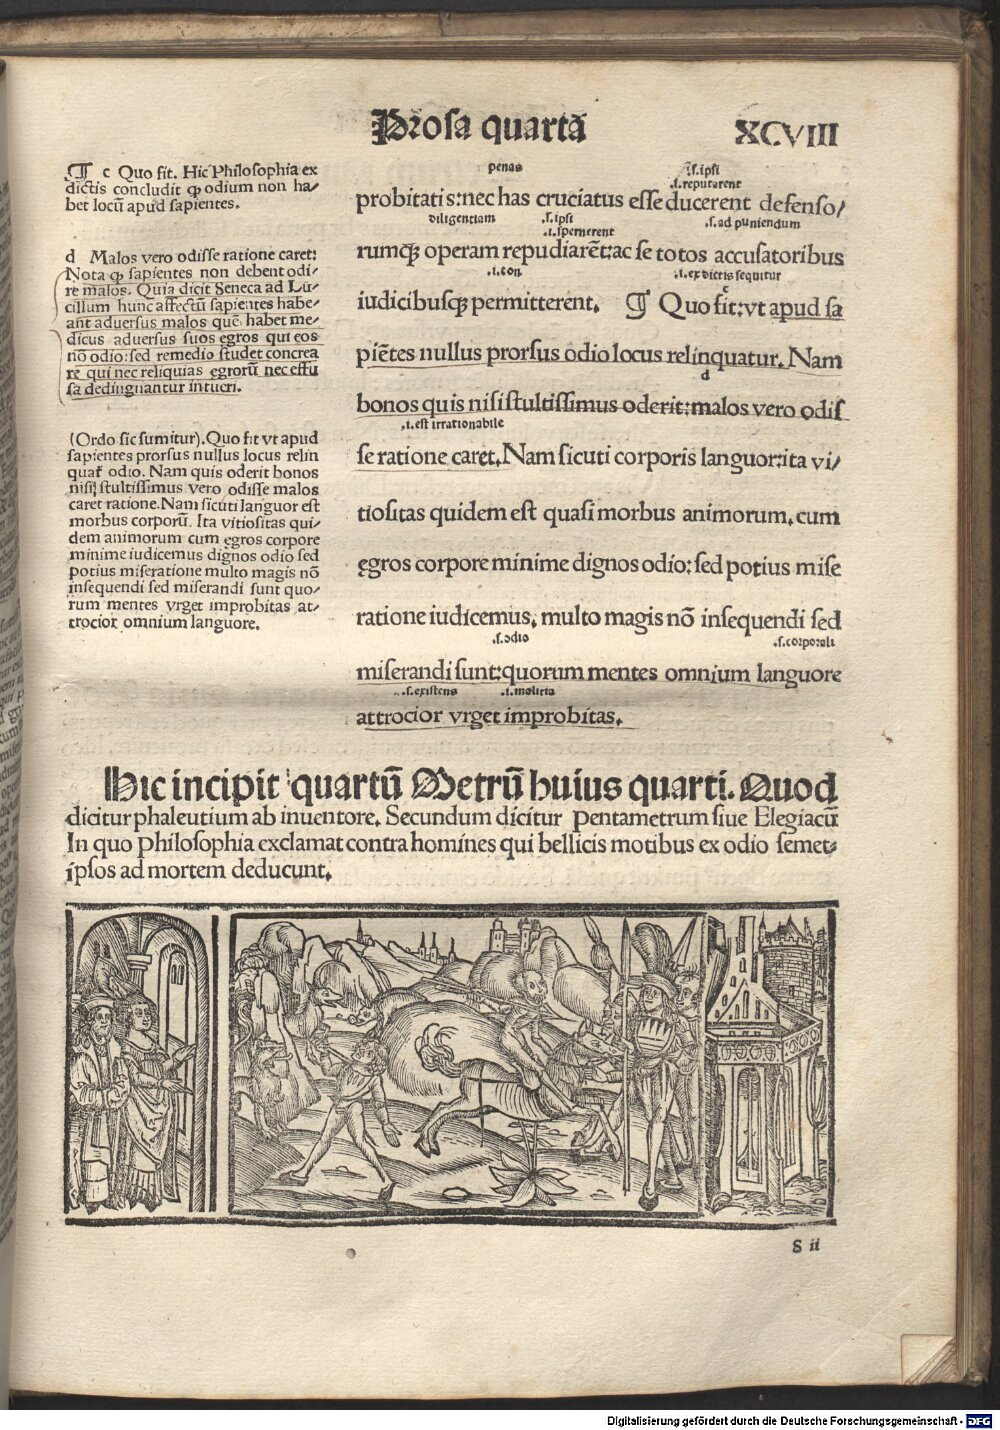 Prosa quarta
XCVIII
¶ c Quo fit. Hic Philosophia ex
dictis concludit ꝙ odium non ha⸗
bet locū apud sapientes.
d Malos vero odisse ratione caret:
Nota ꝙ sapientes non debent odi⸗
re malos. Quia dicit Seneca ad Lu⸗
cillum hunc affectū sapientes habe⸗
ant aduersus malos quē habet me⸗
dicus aduersus suos egros qui eos
nō odio: sed remedio studet concrea
re qui nec reliquias egrorū nec effu
sa dedingnantur intueri.
(Ordo sic sumitur). Quo fit vt apud
sapientes prorsus nullus locus relin
quat᷑ odio. Nam quis oderit bonos
nisi stultissimus vero odisse malos
caret ratione. Nam sicuti languor est
morbus corporū. Ita vitiositas qui⸗
dem animorum cum egros corpore
minime iudicemus dignos odio sed
potius miseratione multo magis nō
insequendi sed miserandi sunt quo⸗
rum mentes vrget improbitas at⸗
trocior omnium languore.
penas
.s. ipsi
.s. reputarent
probitatis: nec has cruciatus esse ducerent defenso⸗
diligentiam .s. ipsi .s. ad puniendum
.i. spernerent
rumqꝫ operam repudiarēt: ac se totos accusatoribus
.i. con .i. ex dictis sequitur
c
iudicibusqꝫ permitterent. ¶ Quo fit: vt apud sa
piētes nullus prorsus odio locus relinquatur. Nam
d
bonos quis nisi stultissimus oderit: malos vero odis
.i. est irrationabile
se ratione caret. Nam sicuti corporis languor: ita vi⸗
tiositas quidem est quasi morbus animorum. cum
ęgros corpore minime dignos odio: sed potius mise
ratione iudicemus. multo magis nō insequendi sed
.s. odio .s. corporali
miserandi sunt: quorum mentes omnium languore
.s. existens .i. malitia
attrocior vrget improbitas.
Hic incipit quartū Metrū huius quarti. Quod
dicitur phaleutium ab inuentore. Secundum dicitur pentametrum siue Elegiacū
In quo philosophia exclamat contra homines qui bellicis motibus ex odio semet⸗
ipsos ad mortem deducunt.
S ii
Digitalisierung gefördert durch die Deutsche Forschungsgemeinschaft - DFG